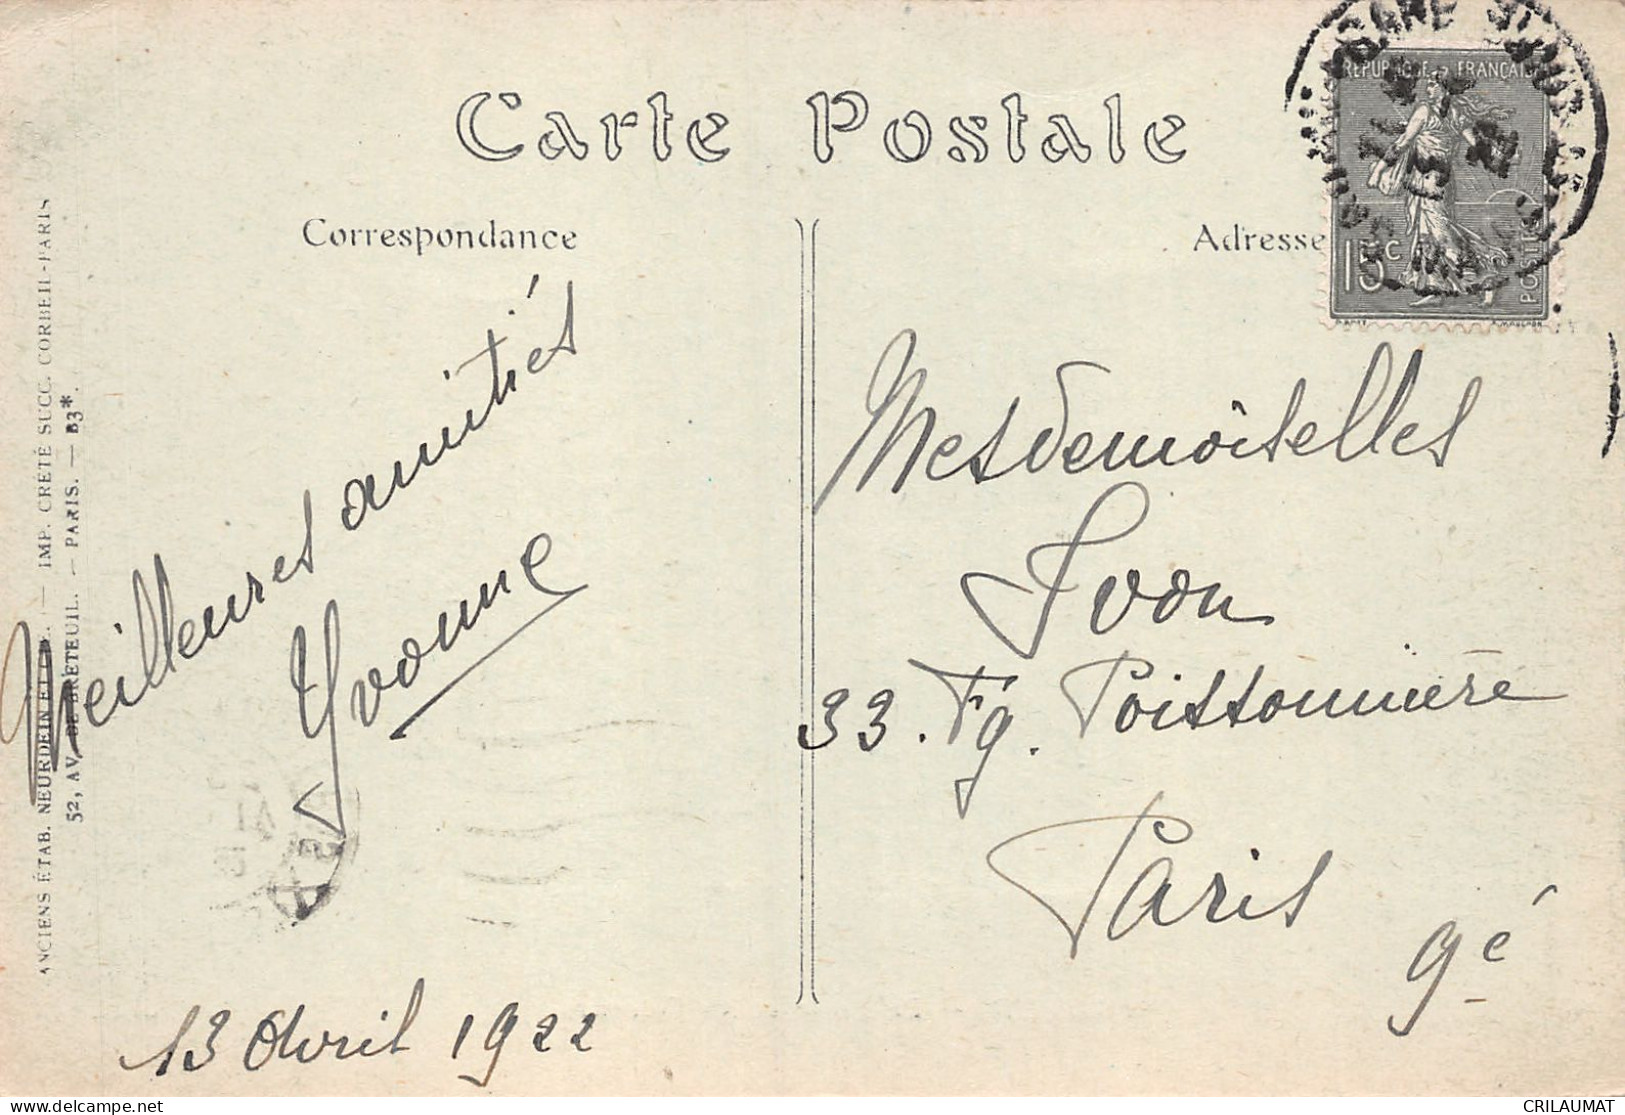 Carte Postale
Correspondance
Adresse
RÉPUBLIQUE FRANÇAISE
15c
POSTES
ANCIENS ÉTAB. NEURDEIN ET — IMP. CRÉTÉ SUCC. CORBEIL-PARIS
52, AV. DE BRETEUIL. — PARIS. — B3*.
Meilleures amitiés
Yvonne
13 Avril 1922
Mesdemoiselles
Yvon
33. Fg. Poissonnière
Paris
9é
delcampe.net
CRILAUMAT